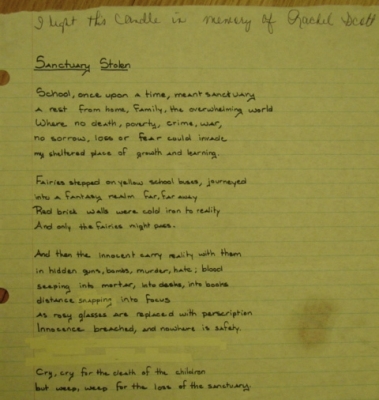 I light this Candle in memory of Rachel Scott
Sanctuary Stolen
School, once upon a time, meant sanctuary
a rest from home, family, the overwhelming world
Where no death, poverty, crime, war,
no sorrow, loss or fear could invade
my sheltered place of growth and learning.
Fairies stepped on yellow school buses, journeyed
into a fantasy realm far, far away
Red brick walls were cold iron to reality
And only the fairies might pass.
And then the innocent carry reality with them
in hidden guns, bombs, murder, hate; blood
seeping into mortar, into desks, into books
distance snapping into focus
as rosy glasses are replaced with perscription
Innocence breached, and nowhere is safety.
Cry, cry for the death of the children
but weep, weep for the loss of the sanctuary